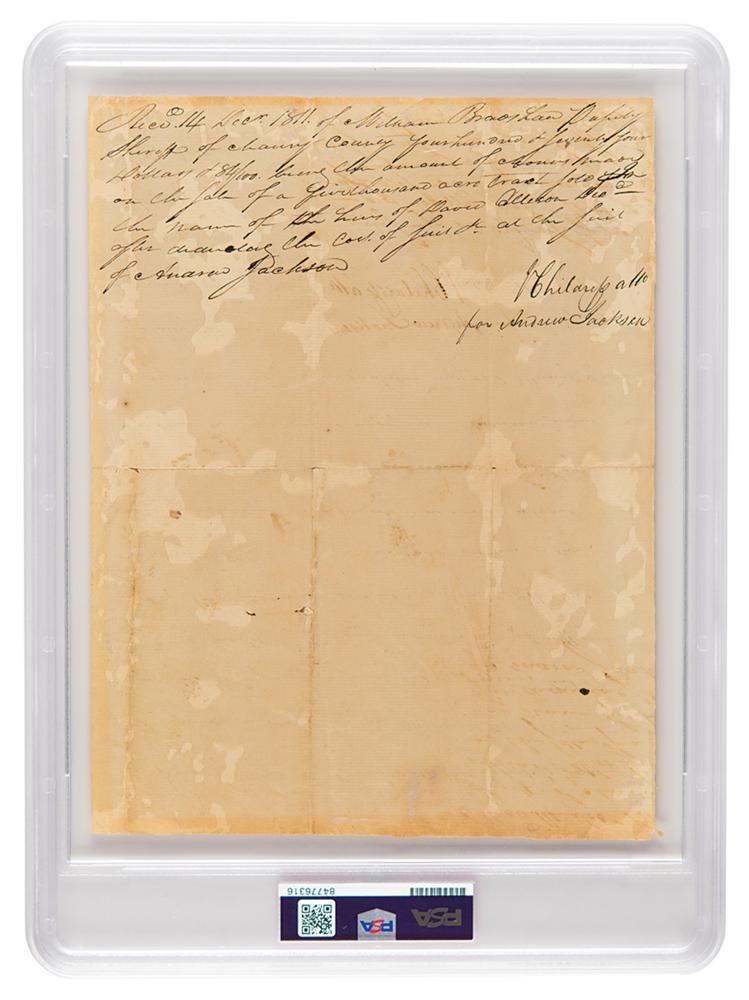 Recd. 14 Decr. 1811. of William Bradshaw Deputy
Sheriff of Maury County four hundred & seventy four
Dollars & 84/100. being the amount of monies made
on the sale of a five thousand acre tract sold
the name of the heirs of David Allison Decd
after deducting the cost of suit &c at the suit
of Andrew Jackson
Childress atto
for Andrew Jackson
84776316
PSA
PSA